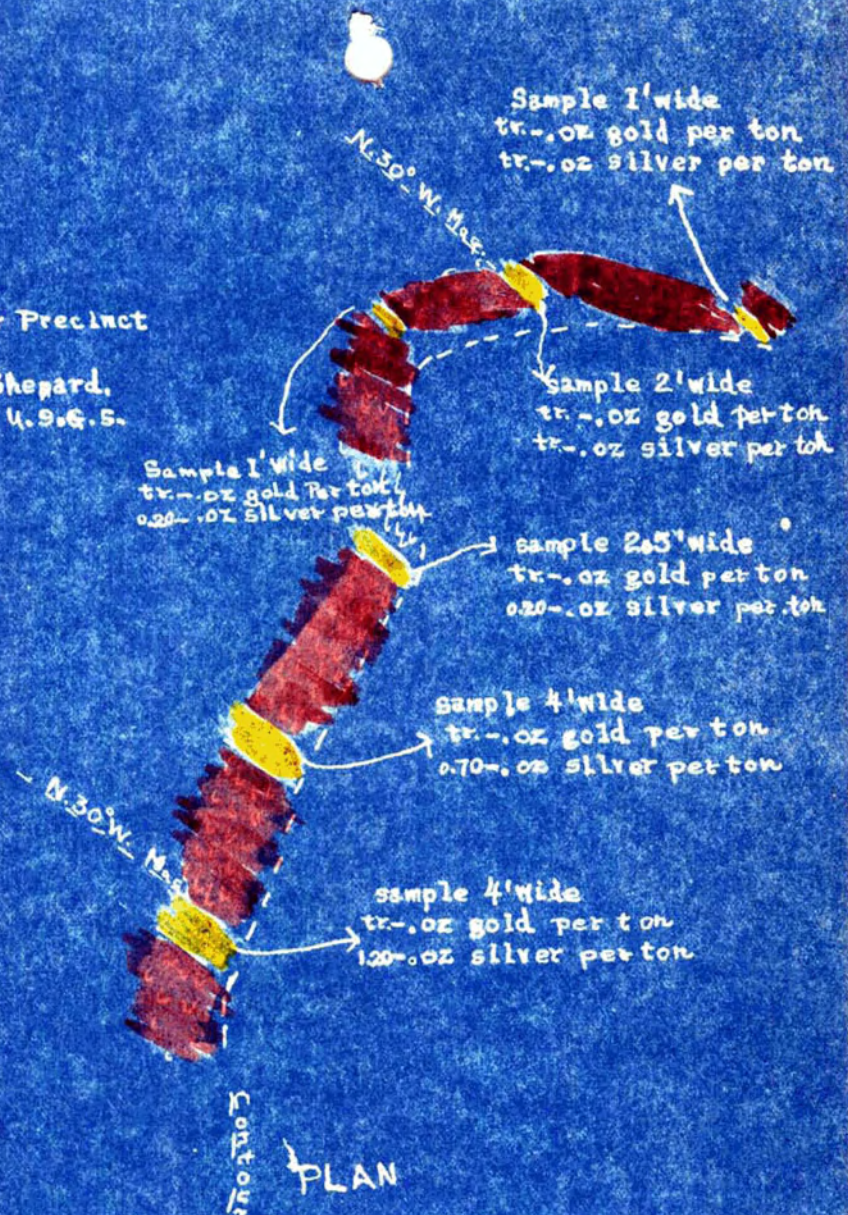 Sample 1'wide
tr.-.oz gold per ton
tr.-.oz silver per ton
N.30° W. Mag.
Precinct
Shepard.
U.S.G.S.
sample 2'wide
tr.-.oz gold per ton
tr.-.oz silver per ton
Sample 1'wide
tr.-.oz gold Per ton
0.20-.oz silver per ton
sample 2.5'wide
tr.-.oz gold per ton
0.20-.oz silver per ton
sample 4'wide
tr.-.oz gold per ton
0.70-.oz silver per ton
N.30°W. Mag.
sample 4'wide
tr.-.oz gold per ton
1.20-.oz silver per ton
Contour
PLAN